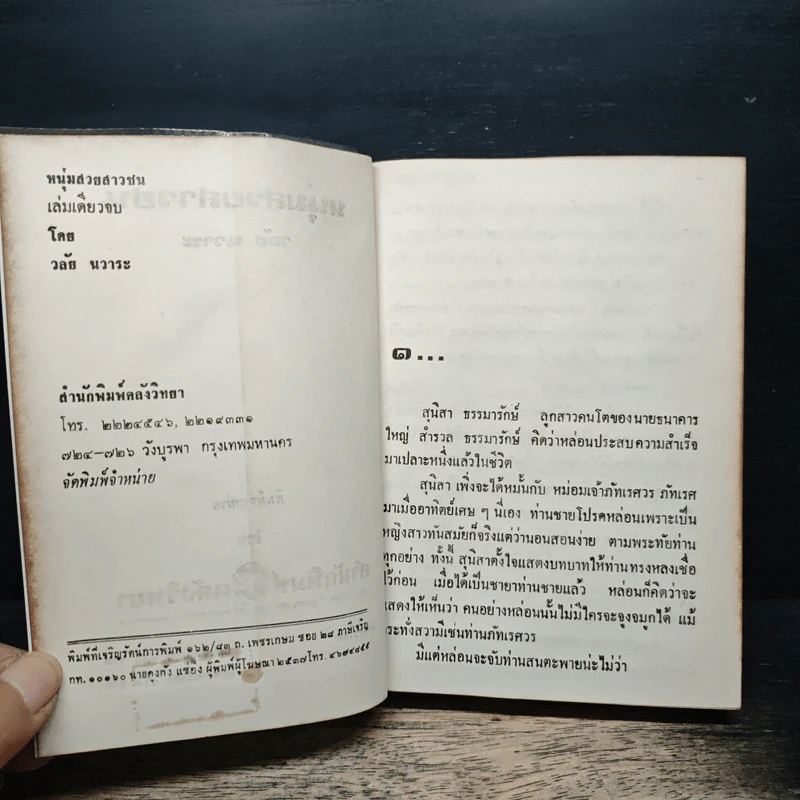 หนุ่มสวยสาวซน
เล่มเดียวจบ
โดย
วลัย นวาระ
สำนักพิมพ์คลังวิทยา
โทร. ๒๒๒๔๕๔๖, ๒๒๑๙๓๓๑
๗๒๔–๗๒๖ วังบูรพา กรุงเทพมหานคร
จัดพิมพ์จำหน่าย
พิมพ์ที่เจริญรัตน์การพิมพ์ ๑๖๒/๘๓ ถ. เพชรเกษม ซอย ๒๘ ภาษีเจริญ
กท. ๑๐๑๖๐ นายคุงกัง แซ่อึ้ง ผู้พิมพ์ผู้โฆษณา ๒๕๓๗ โทร. ๔๖๗๔๘๕๕
๑...
สุนิสา ธรรมารักษ์ ลูกสาวคนโตของนายธนาคาร
ใหญ่ สำรวล ธรรมารักษ์ คิดว่าหล่อนประสบความสำเร็จ
มาเปลาะหนึ่งแล้วในชีวิต
สุนิสา เพิ่งจะได้หมั้นกับ หม่อมเจ้าภัทเรศวร ภัทเรศ
มาเมื่ออาทิตย์เศษ ๆ นี่เอง ท่านชายโปรดหล่อนเพราะเป็น
หญิงสาวทันสมัยก็จริงแต่ว่านอนสอนง่าย ตามพระทัยท่าน
ทุกอย่าง ทั้งนี้ สุนิสาตั้งใจแสดงบทบาทให้ท่านทรงหลงเชื่อ
ไว้ก่อน เมื่อได้เป็นชายาท่านชายแล้ว หล่อนก็คิดว่าจะ
แสดงให้เห็นว่า คนอย่างหล่อนนั้นไม่มีใครจะจูงจมูกได้ แม้
กระทั่งสวามีเช่นท่านภัทเรศวร
มีแต่หล่อนจะจับท่านสนตะพายน่ะไม่ว่า